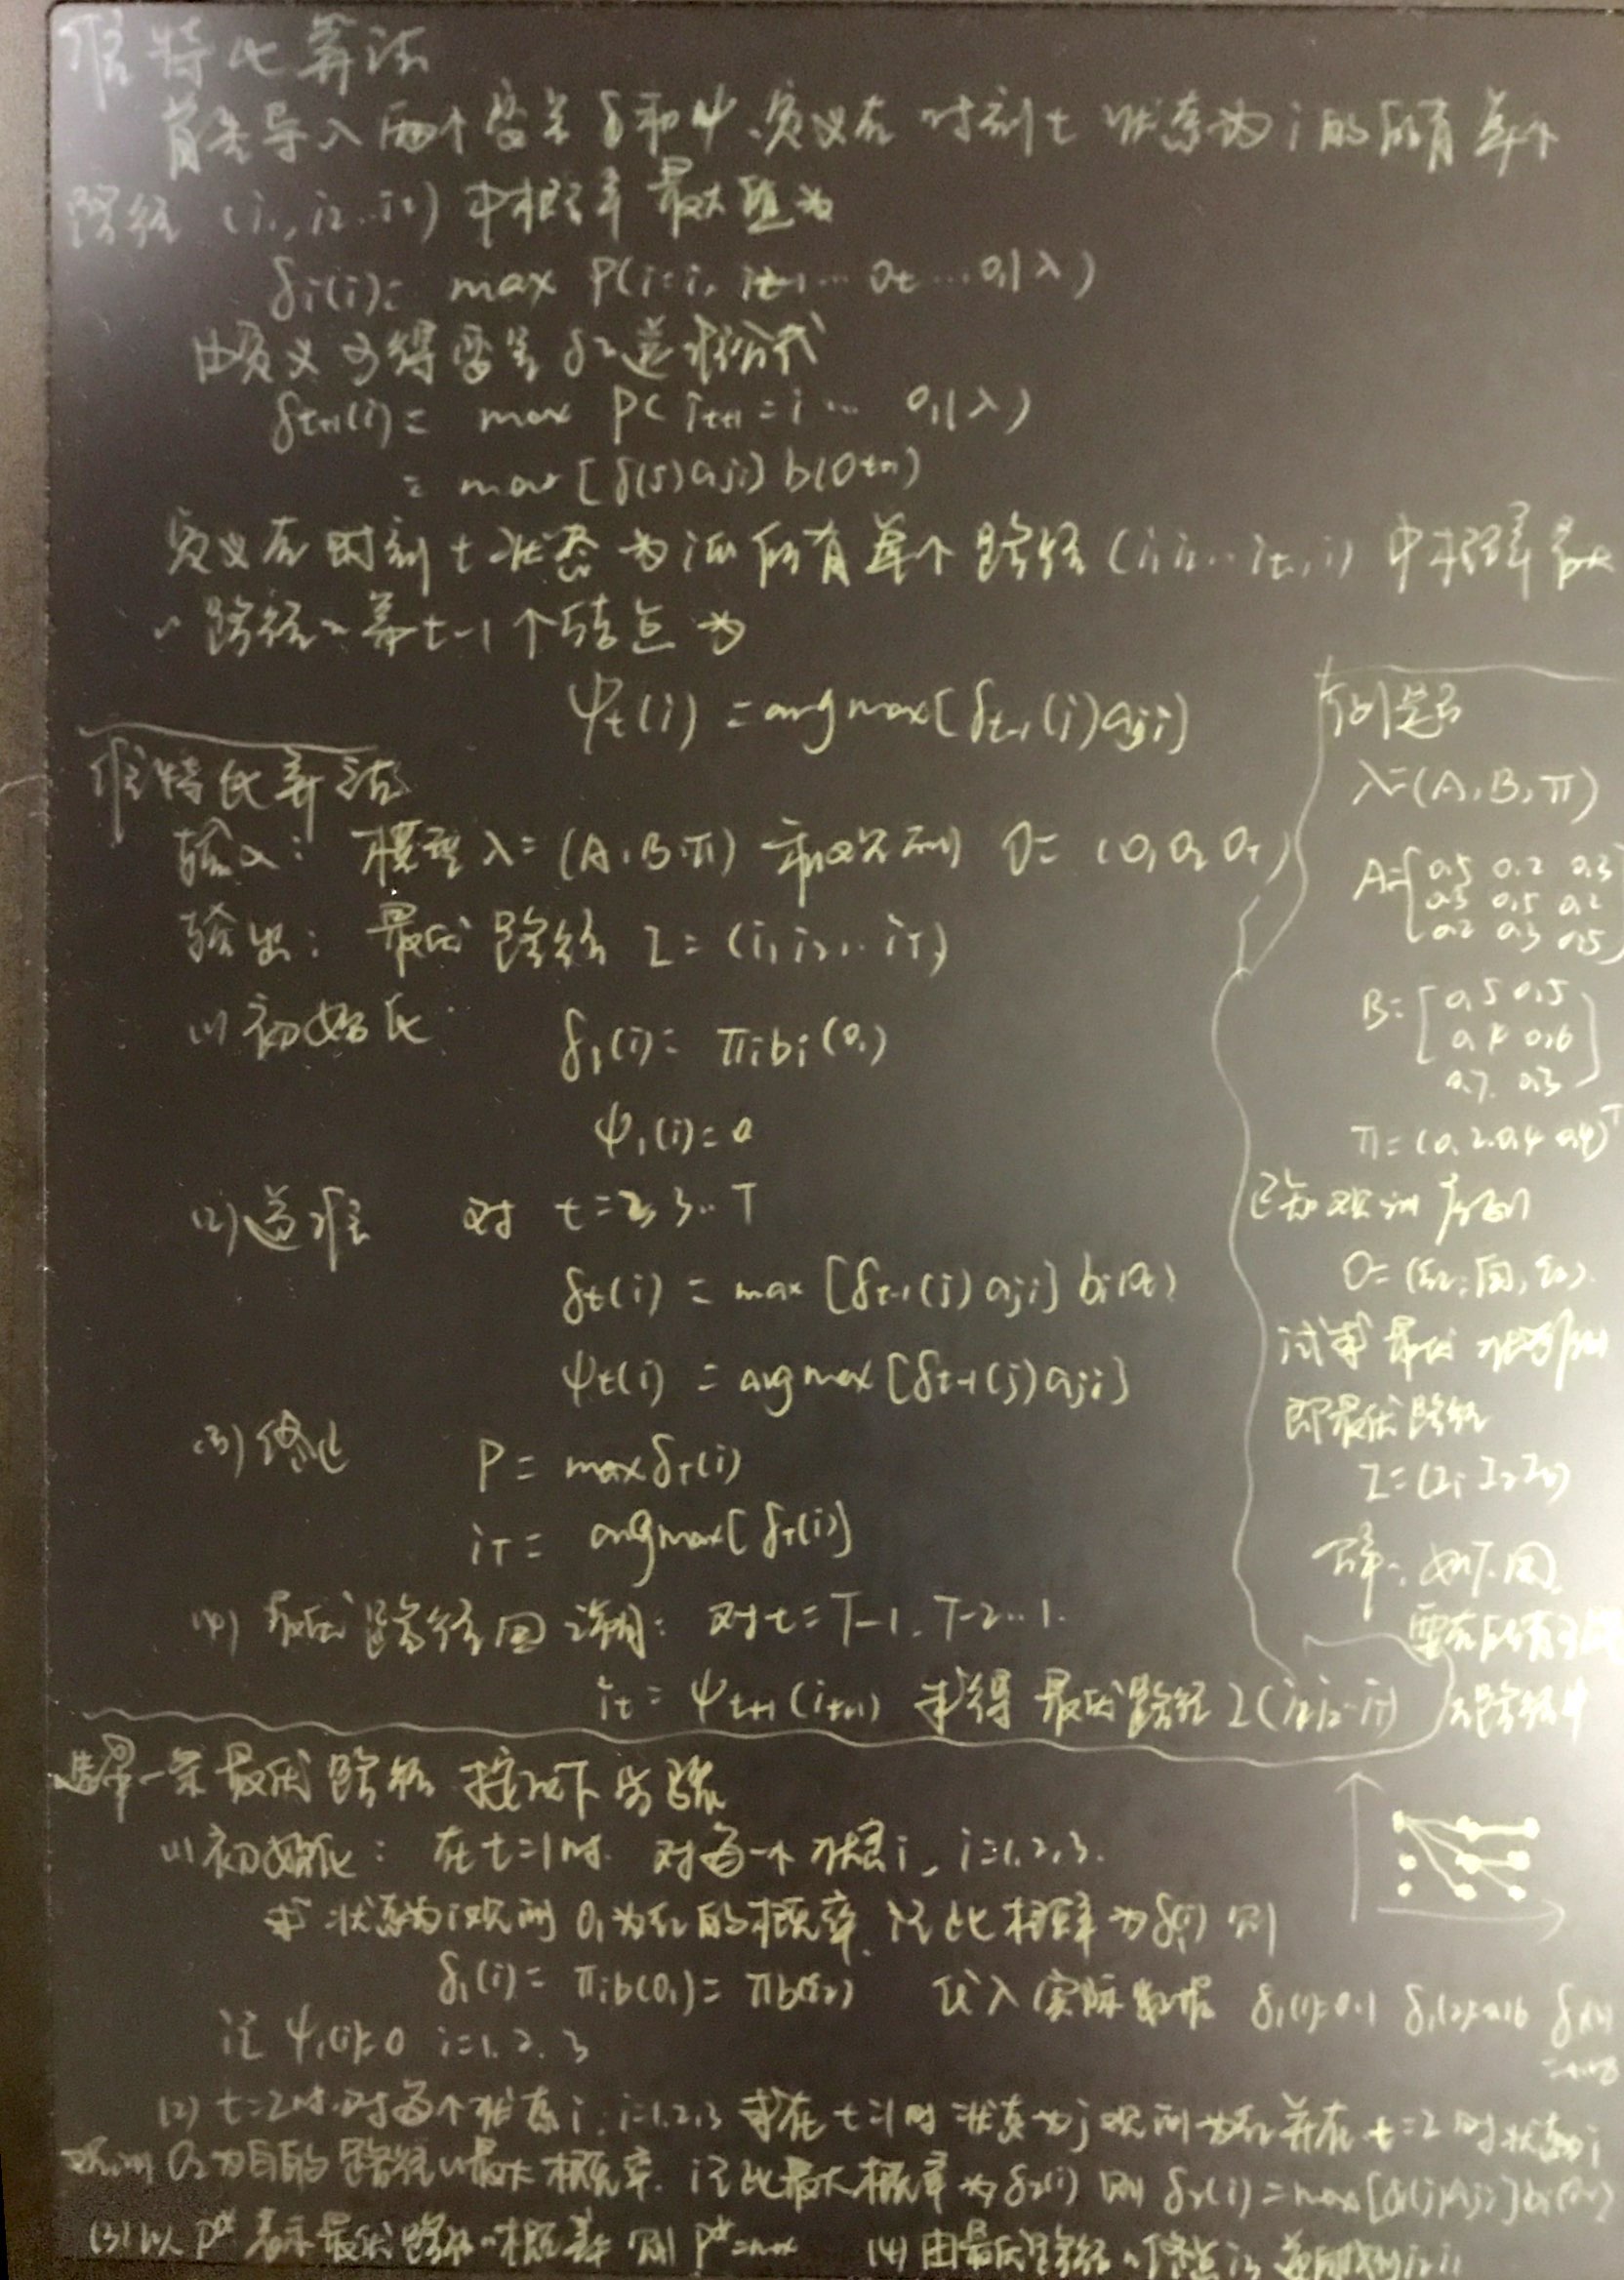 维特比算法
首先导入两个变量 δ和ψ. 定义在 时刻t 状态为i的所有单个
路径 (i₁, i₂…it) 中概率最大值为
δi(i)= max P(i=i, it-1… Ot …O₁|λ)
由定义可得变量δ 递推公式
δt+1(i)= max P( it+1=i … O₁|λ)
= max[δ(j)aji) b(Ot+1)
定义在时刻t状态为i的所有单个路径(i₁i₂…it,i) 中概率最大
路径 第t-1个结点为
ψt(i) =argmax[δt-1(j)aji)
维特比算法
输入: 模型λ=(A,B,π) 和观测 O=(O₁O₂ OT)
输出: 最优路径 I=(i₁i₂…iT)
(1) 初始化 δ₁(i)= πibi(O₁)
ψ₁(i)=0
(2) 递推 对 t=2,3..T
δt(i) = max [δt-1(j)aji] bi(Ot)
ψt(i) = argmax[δt-1(j)aji]
(3) 终止 P= maxδT(i)
iT= argmax[δT(i)]
(4) 最优路径回溯: 对t=T-1. T-2…1.
it=ψt+1(it+1) 求得最优路径I(i₁i₂…iT)
例题
λ=(A,B,π)
A=[0.5 0.2 0.3
0.3 0.5 0.2
0.2 0.3 0.5]
B=[0.5 0.5
0.4 0.6
0.7 0.3]
π=(0.2 0.4 0.4)ᵀ
已知观测序列
O=(红,白,红).
试求最优状态序列
即最优路径
I=(I₁ I₂ I₃)
解: 如下图
要在所有可能
路径中
选择一条最优路径 按以下步骤
(1)初始化: 在t=1时. 对每一个状态i, i=1,2,3.
求状态为i观测O₁为红的概率. 记此概率为δ₁(i) 则
δ₁(i)= πib(O₁)= πb(红) 代入实际数据 δ₁(1)=0.1 δ₁(2)=0.16 δ₁(3)
=0.28
记 ψ₁(i)=0 i=1.2.3
(2) t=2时.对每个状态i, i=1,2,3 求在t=1时状态为j观测为红并在t=2时状态为i
观测O₂为白的路径的最大概率. 记此最大概率为δ₂(i) 则 δ₂(i)=max[δ₁(j)aji]bi(O₂)
(3)以P*表示最优路径的概率 则P*=max (4)由最优路径的终点i₃ 逆向找到i₂i₁